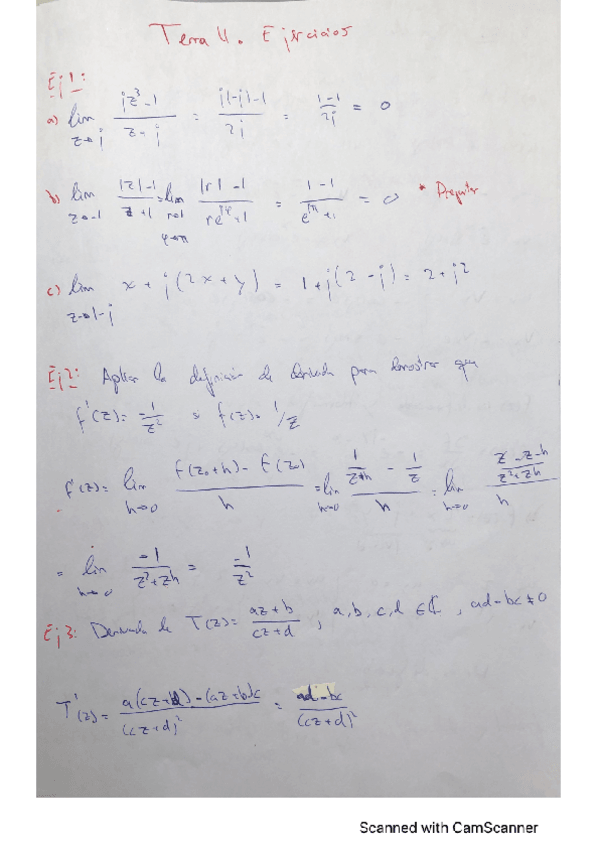 Tema 4. Ejercicios
Ej 1:
a) lim z→j (jz³-1)/(z-j) = (j(-j)-1)/2j = (1-1)/2j = 0
b) lim z→-1 (|z|-1)/(z+1) = lim r→1 φ→π (|r|-1)/(re^jφ+1) = (1-1)/(e^jπ+1) = 0 * Preguntar
c) lim z→1-j x+j(2x+y) = 1+j(2-j) = 2+j2
Ej 2: Aplicar la definición de derivada para demostrar que
f'(z) = -1/z² si f(z) = 1/z
f'(z) = lim h→0 (f(z₀+h) - f(z₀))/h = lim h→0 (1/(z+h) - 1/z)/h = lim h→0 ((z-z-h)/(z²+zh))/h
= lim h→0 -1/(z²+zh) = -1/z²
Ej 3: Derivada de T(z) = (az+b)/(cz+d), a,b,c,d ∈ ℂ, ad-bc ≠ 0
T'(z) = (a(cz+d)-(az+b)c)/(cz+d)² = (ad-bc)/(cz+d)²
Scanned with CamScanner